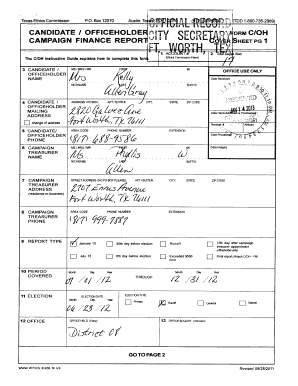 Texas Ethics Commission P.O. Box 12070 Austin, Texas (TDD 1-800-735-2989)
OFFICIAL RECORD
CITY SECRETARY
FT. WORTH, TX
CANDIDATE / OFFICEHOLDER
CAMPAIGN FINANCE REPORT
FORM C/OH
COVER SHEET PG 1
The C/OH Instruction Guide explains how to complete this form.
17
3 CANDIDATE / OFFICEHOLDER NAME
Mrs Kelly
NICKNAME LAST SUFFIX
Allen Gray
OFFICE USE ONLY
4 CANDIDATE / OFFICEHOLDER MAILING ADDRESS
change of address
ADDRESS / PO BOX; APT / SUITE #; CITY; STATE; ZIP CODE
Fort Worth, TX 76111
5 CANDIDATE/ OFFICEHOLDER PHONE
AREA CODE PHONE NUMBER EXTENSION
(817) 688-9586
6 CAMPAIGN TREASURER NAME
Ms Phyllis W
NICKNAME LAST SUFFIX
Allen
7 CAMPAIGN TREASURER ADDRESS
(residence or business)
STREET ADDRESS (NO PO BOX PLEASE); APT / SUITE #; CITY; STATE; ZIP CODE
Fort Worth, TX 76111
8 CAMPAIGN TREASURER PHONE
AREA CODE PHONE NUMBER EXTENSION
(817) 999-7889
9 REPORT TYPE
January 15 30th day before election Runoff 15th day after campaign treasurer appointment (officeholder only)
July 15 8th day before election Exceeded $500 limit Final report (Attach C/OH - FR)
10 PERIOD COVERED
Month Day Year Month Day Year
07 / 01 / 12 THROUGH 12 / 31 / 12
11 ELECTION
ELECTION DATE ELECTION TYPE
Month Day Year
06 / 23 / 12 Primary Runoff General Special
12 OFFICE
OFFICE HELD (if any)
District 08
13 OFFICE SOUGHT (if known)
GO TO PAGE 2
www.ethics.state.tx.us Revised 09/28/2011